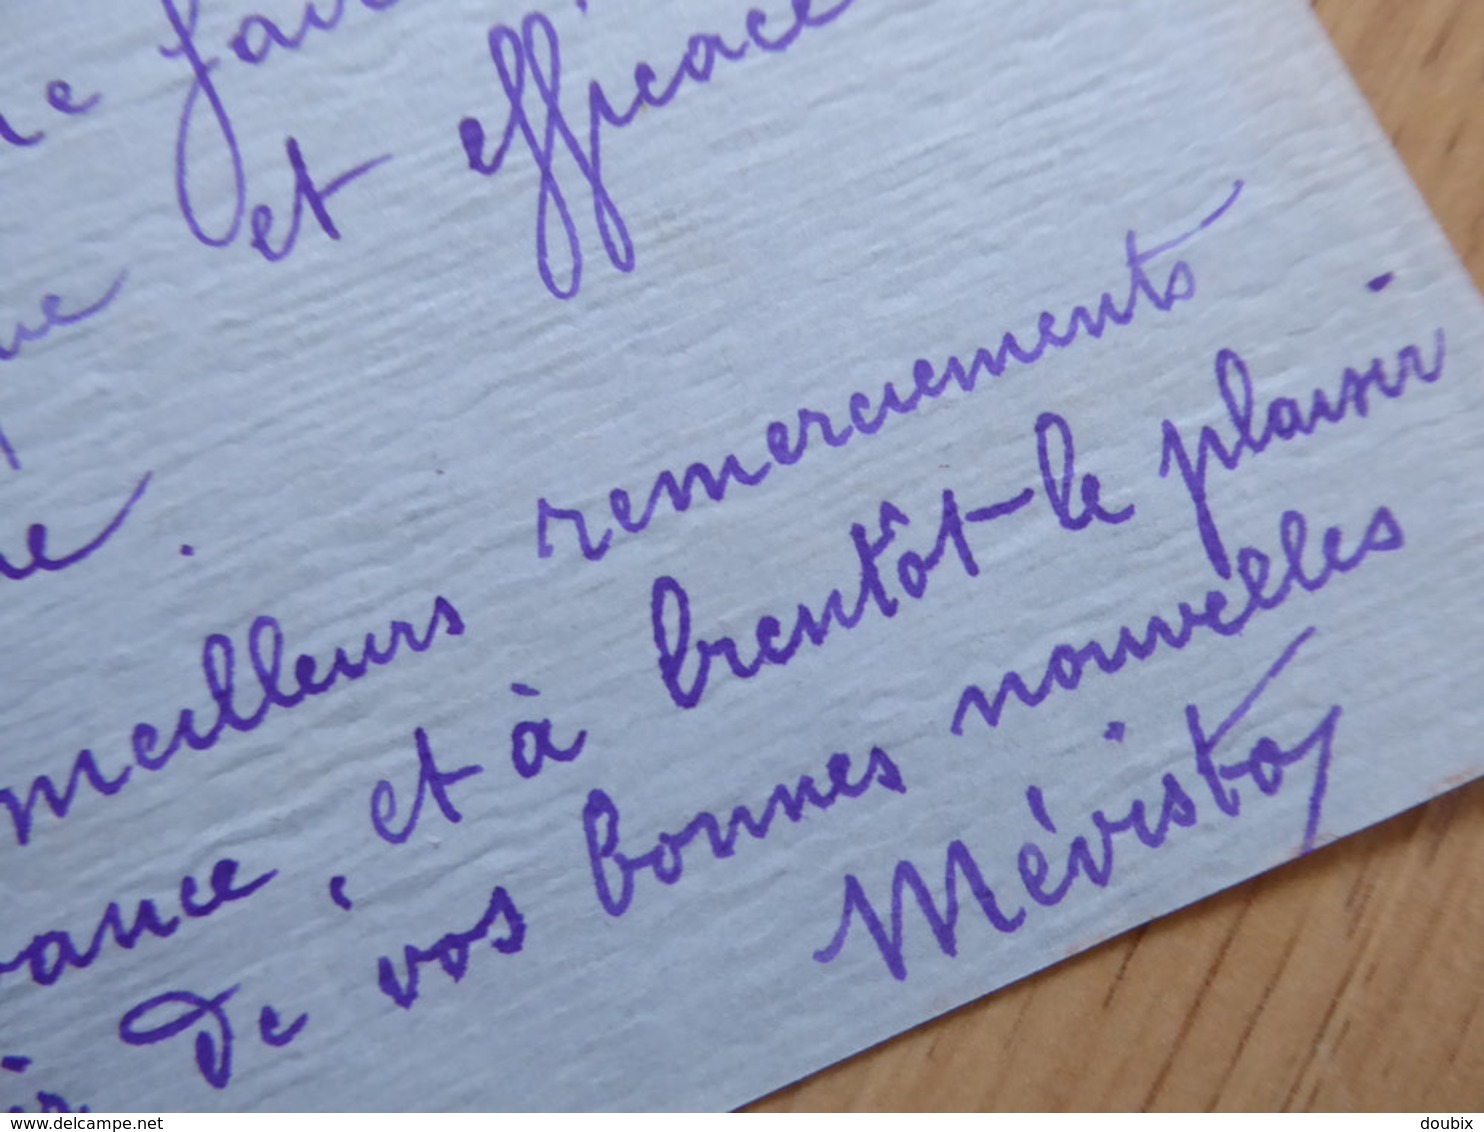 et efficace
meilleurs remerciements
et à bientôt le plaisir
de vos bonnes nouvelles
Mévisto
delcampe.net
doubix